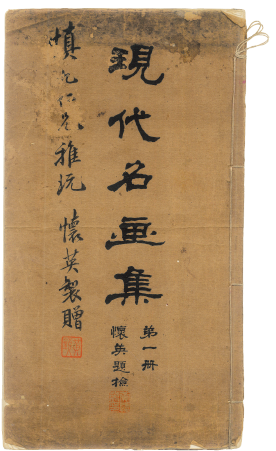 現代名画集
第一册
懷英題檢
慎仁兄雅玩 懷英製贈